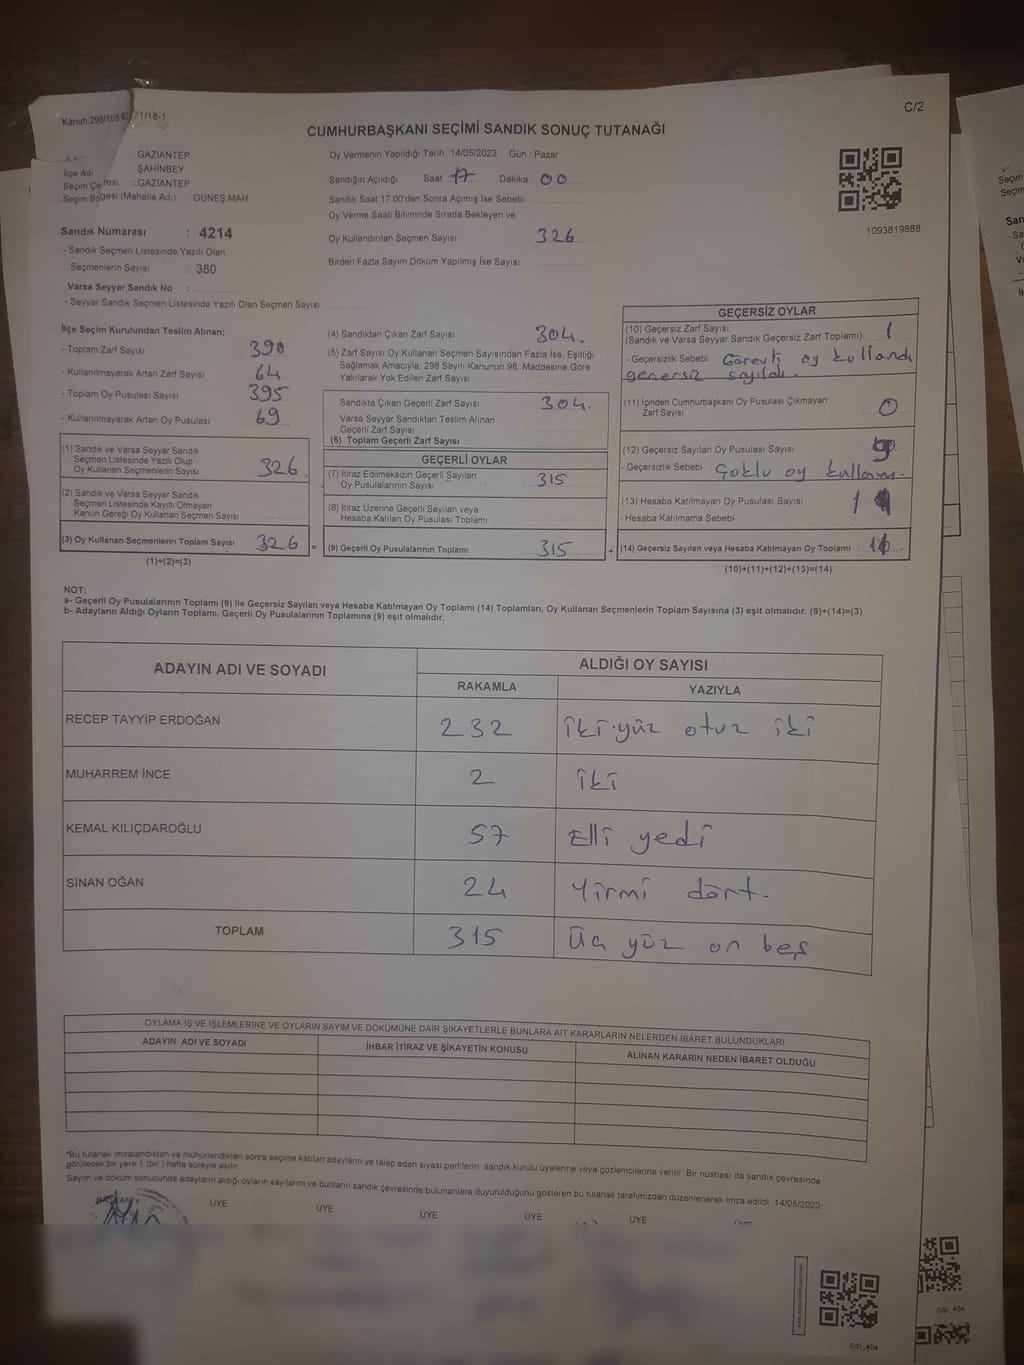 C/2
Kanun:298/105,
71/18-1
CUMHURBAŞKANI SEÇİMİ SANDIK SONUÇ TUTANAĞI
GAZIANTEP
İlçe Adı ŞAHİNBEY
Seçim Çevresi : GAZIANTEP
Seçim Bölgesi (Mahalle Adı) : GÜNEŞ MAH
Sandık Numarası : 4214
- Sandık Seçmen Listesinde Yazılı Olan
Seçmenlerin Sayısı : 380
Varsa Seyyar Sandık No :
- Seyyar Sandık Seçmen Listesinde Yazılı Olan Seçmen Sayısı
Oy Vermenin Yapıldığı Tarih :14/05/2023 Gün : Pazar
Sandığın Açıldığı Saat 17 Dakika 00
Sandık Saat 17.00'den Sonra Açımış İse Sebebi
Oy Verme Saati Bitiminde Sırada Bekleyen ve
Oy Kullandırılan Seçmen Sayısı 326
Birden Fazla Sayım Döküm Yapılmış İse Sayısı :
1093819888
İlçe Seçim Kurulundan Teslim Alınan;
- Toplam Zarf Sayısı 390
- Kullanılmayarak Artan Zarf Sayısı 64
- Toplam Oy Pusulası Sayısı 395
- Kullanılmayarak Artan Oy Pusulası 69
(1) Sandık ve Varsa Seyyar Sandık
Seçmen Listesinde Yazılı Olup
Oy Kullanan Seçmenlerin Sayısı 326
(2) Sandık ve Varsa Seyyar Sandık
Seçmen Listesinde Kayıtlı Olmayan
Kanun Gereği Oy Kullanan Seçmen Sayısı
(3) Oy Kullanan Seçmenlerin Toplam Sayısı 326 =
(1)+(2)=(3)
(4) Sandıktan Çıkan Zarf Sayısı 304.
(5) Zarf Sayısı Oy Kullanan Seçmen Sayısından Fazla İse, Eşitliği
Sağlamak Amacıyla, 298 Sayılı Kanunun 98. Maddesine Göre
Yakılarak Yok Edilen Zarf Sayısı
Sandıkta Çıkan Geçerli Zarf Sayısı 304.
Varsa Seyyar Sandıktan Teslim Alınan
Geçerli Zarf Sayısı
(6) Toplam Geçerli Zarf Sayısı
GEÇERLİ OYLAR
(7) İtiraz Edilmeksizin Geçerli Sayılan
Oy Pusulalarının Sayısı 315
(8) İtiraz Üzerine Geçerli Sayılan veya
Hesaba Katılan Oy Pusulası Toplamı
(9) Geçerli Oy Pusulalarının Toplamı 315 +
GEÇERSİZ OYLAR
(10) Geçersiz Zarf Sayısı
(Sandık ve Varsa Seyyar Sandık Geçersiz Zarf Toplamı) 1
- Geçersizlik Sebebi Görevli oy kullandı
geçersiz sayıldı.
(11) İçinden Cumhurbaşkanı Oy Pusulası Çıkmayan
Zarf Sayısı 0
(12) Geçersiz Sayılan Oy Pusulası Sayısı
- Geçersizlik Sebebi : Çoklu oy
(13) Hesaba Katılmayan Oy Pusulası Sayısı 1
- Hesaba Katılmama Sebebi
(14) Geçersiz Sayılan veya Hesaba Katılmayan Oy Toplamı
(10)+(11)+(12)+(13)=(14)
NOT:
a- Geçerli Oy Pusulalarının Toplamı (9) ile Geçersiz Sayılan veya Hesaba Katılmayan Oy Toplamı (14) Toplamları, Oy Kullanan Seçmenlerin Toplam Sayısına (3) eşit olmalıdır. (9)+(14)=(3)
b- Adayların Aldığı Oyların Toplamı, Geçerli Oy Pusulalarının Toplamına (9) eşit olmalıdır.
ADAYIN ADI VE SOYADI ALDIĞI OY SAYISI
RAKAMLA YAZIYLA
RECEP TAYYİP ERDOĞAN 232 iki yüz otuz iki
MUHARREM İNCE 2 iki
KEMAL KILIÇDAROĞLU 57 Elli yedi
SİNAN OĞAN 24 Yirmi dört.
TOPLAM 315 Üç yüz on beş
OYLAMA İŞ VE İŞLEMLERİNE VE OYLARIN SAYIM VE DÖKÜMÜNE DAİR ŞİKAYETLERLE BUNLARA AİT KARARLARIN NELERDEN İBARET BULUNDUKLARI
ADAYIN ADI VE SOYADI İHBAR İTİRAZ VE ŞİKAYETİN KONUSU ALINAN KARARIN NEDEN İBARET OLDUĞU
*Bu tutanak imzalandıktan ve mühürlendikten sonra seçime katılan adayların ve talep eden siyasi partilerin sandık kurulu üyelerine veya gözlemcilerine verilir. Bir nüshası da sandık çevresinde
görülecek bir yere 1 (bir) hafta süreyle asılır.
Sayım ve döküm sonucunda adayların aldığı oyların sayılarını ve bunların sandık çevresinde bulunanlara duyurulduğunu gösteren bu tutanak tarafımızdan düzenlenerek imza edildi 14/05/2023
BAŞKAN ÜYE ÜYE ÜYE ÜYE ÜYE
SSİ_404
SSİ_404